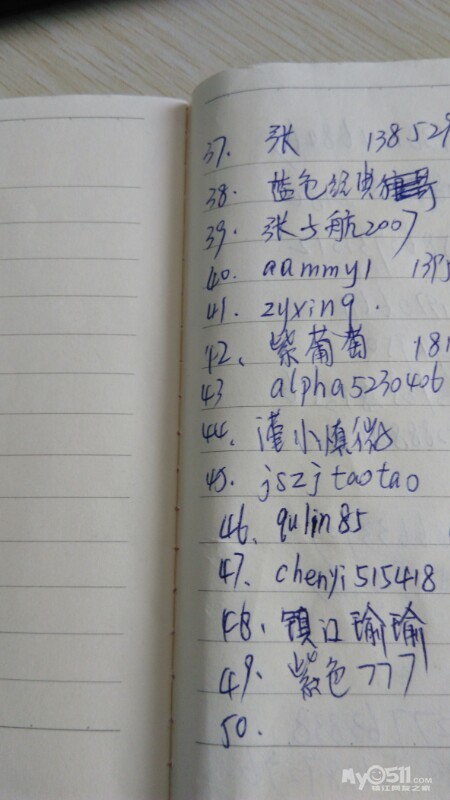 37. 张 138529
38. 蓝色经典
39. 张子航2007
40. aammy1 1395
41. zyxing.
42、紫葡萄 181
43 alpha5230406
44、谨小慎微
45. jszjtaotao
46、qulin85
47、chenyi515418
48、镇江瑜瑜
49. 紫色777
50.
My0511.com
镇江网友之家